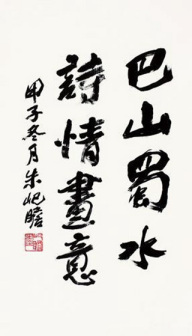 巴山蜀水
詩情畫意
甲子冬月朱屺瞻